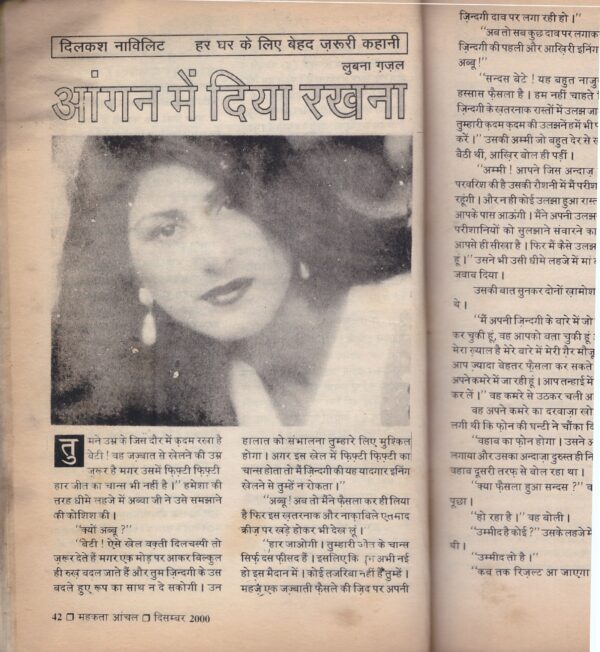 दिलकश नाविलिट
हर घर के लिए बेहद ज़रूरी कहानी
लुबना ग़ज़ल
आंगन में दिया रखना
तुमने उम्र के जिस दौर में क़दम रखा है
बेटी ! वह जज़्बात से खेलने की उम्र
ज़रूर है मगर उसमें फ़िफ़्टी फ़िफ़्टी
हार जीत का चान्स भी नहीं है ।" हमेशा की
तरह धीमे लहजे में अब्बा जी ने उसे समझाने
की कोशिश की ।
"क्यों अब्बू ?"
"बेटी ! ऐसे खेल वक़्ती दिलचस्पी तो
ज़रूर देते हैं मगर एक मोड़ पर आकर बिल्कुल
ही रुख़ बदल जाते हैं और तुम ज़िन्दगी के उस
बदले हुए रूप का साथ न दे सकोगी । उन
हालात को संभालना तुम्हारे लिए मुश्किल
होगा । अगर इस खेल में फ़िफ़्टी फ़िफ़्टी का
चान्स होता तो मैं ज़िन्दगी की यह यादगार इनिंग
खेलने से तुम्हें न रोकता ।"
"अब्बू! अब तो मैंने फ़ैसला कर ही लिया
है फिर इस ख़तरनाक और नाक़ाबिले एतमाद
क्रीज़ पर खड़े होकर भी देख लूं ।"
"हार जाओगी । तुम्हारी जीत के चान्स
सिर्फ़ दस फ़ीसद हैं । इसलिए कि अभी नई
हो इस मैदान में । कोई तजरिबा नहीं है तुम्हें ।
महज़ एक जज़्बाती फ़ैसले की ज़िद पर अपनी
42 ❒ महकता आंचल ❒ दिसम्बर 2000
ज़िन्दगी दाव पर लगा रही हो ।"
"अब तो सब कुछ दाव पर लगाकर
ज़िन्दगी की पहली और आख़िरी इनिंग
अब्बू !"
"सन्दस बेटे ! यह बहुत नाज़ु
हस्सास फ़ैसला है । हम नहीं चाहते
ज़िन्दगी के ख़तरनाक रास्तों में उलझ जा
तुम्हारी क़दम क़दम की उलझनें हमें भी प
करें ।" उसकी अम्मी जो बहुत देर से
बैठी थीं, आख़िर बोल ही पड़ीं ।
"अम्मी ! आपने जिस अन्दाज़
परवरिश की है उसकी रौशनी में मैं परीश
रहूंगी । और न ही कोई उलझा हुआ रास्
आपके पास आऊंगी । मैंने अपनी उलझ
परीशानियों को सुलझाने संवारने का
आपसे ही सीखा है । फिर मैं कैसे उलझ
हूं ।" उसने भी उसी धीमे लहजे में मां
जवाब दिया ।
उसकी बात सुनकर दोनों ख़ामोश
थे ।
"मैं अपनी ज़िन्दगी के बारे में जो
कर चुकी हूं, वह आपको बता चुकी हूं
मेरा ख़्याल है मेरे बारे में मेरी ग़ैर मौजू
आप ज़्यादा बेहतर फ़ैसला कर सकते
अपने कमरे में जा रही हूं । आप तन्हाई में
कर लें ।" वह कमरे से उठकर चली अ
वह अपने कमरे का दरवाज़ा खो
लगी थी कि फ़ोन की घन्टी ने चौंका दि
"वहाब का फ़ोन होगा । उसने अ
लगाया और उसका अन्दाज़ा दुरुस्त ही नि
वहाब दूसरी तरफ़ से बोल रहा था ।
"क्या फ़ैसला हुआ सन्दस ?" व
पूछा ।
"हो रहा है ।" वह बोली ।
"उम्मीद है कोई ?" उसके लहजे में
थी ।
"उम्मीद तो है ।"
"कब तक रिज़ल्ट आ जाएगा